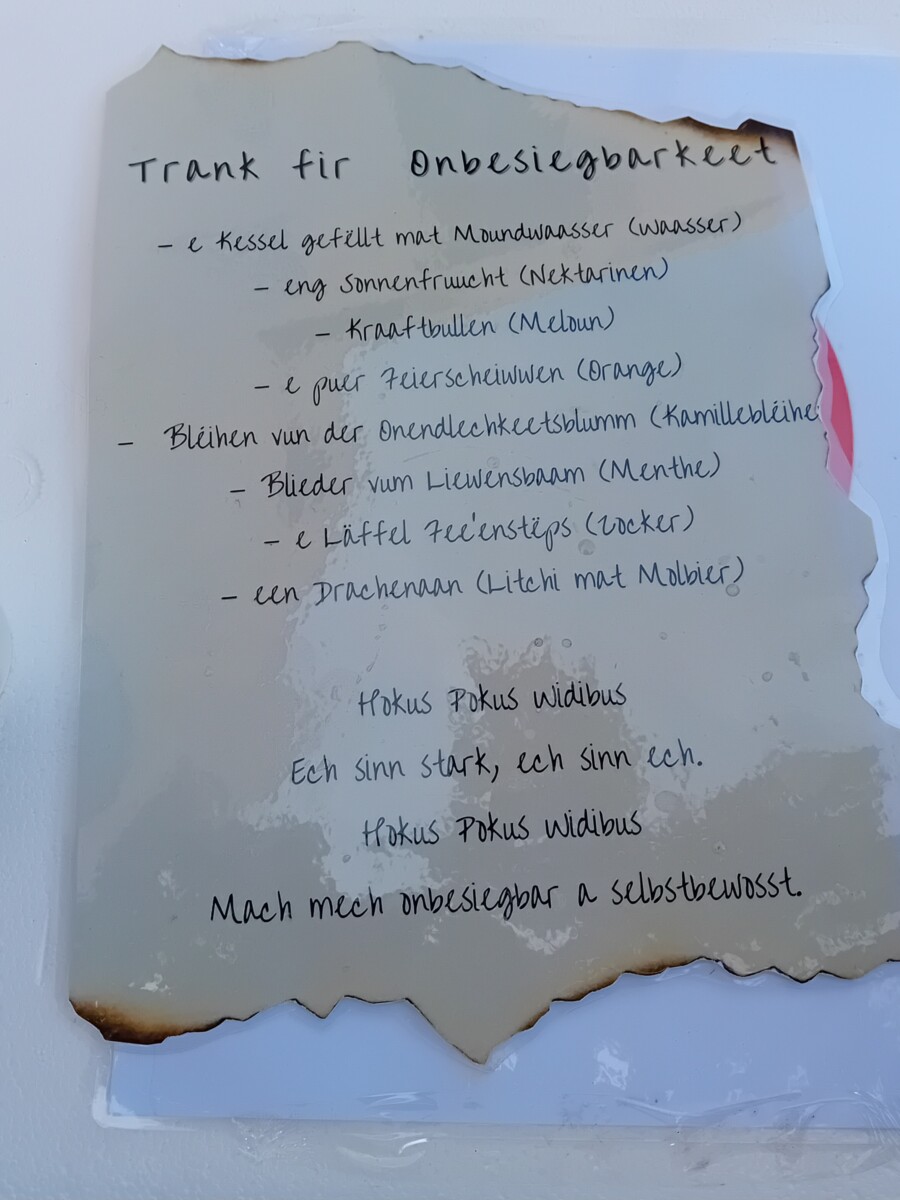 Trank fir Onbesiegbarkeet
- e Kessel gefëllt mat Moundwaasser (Waasser)
- eng Sonnenfruucht (Nektarinen)
- Kraaftbullen (Meloun)
- e puer Feierscheiwwen (Orange)
- Bléihen vun der Onendlechkeetsblumm (Kamillebléihe
- Blieder vum Liewensbaam (Menthe)
- e Läffel Fee'enstëps (Zocker)
- een Drachenaan (Litchi mat Molbier)
Hokus Pokus Widibus
Ech sinn stark, ech sinn ech.
Hokus Pokus Widibus
Mach mech onbesiegbar a selbstbewosst.